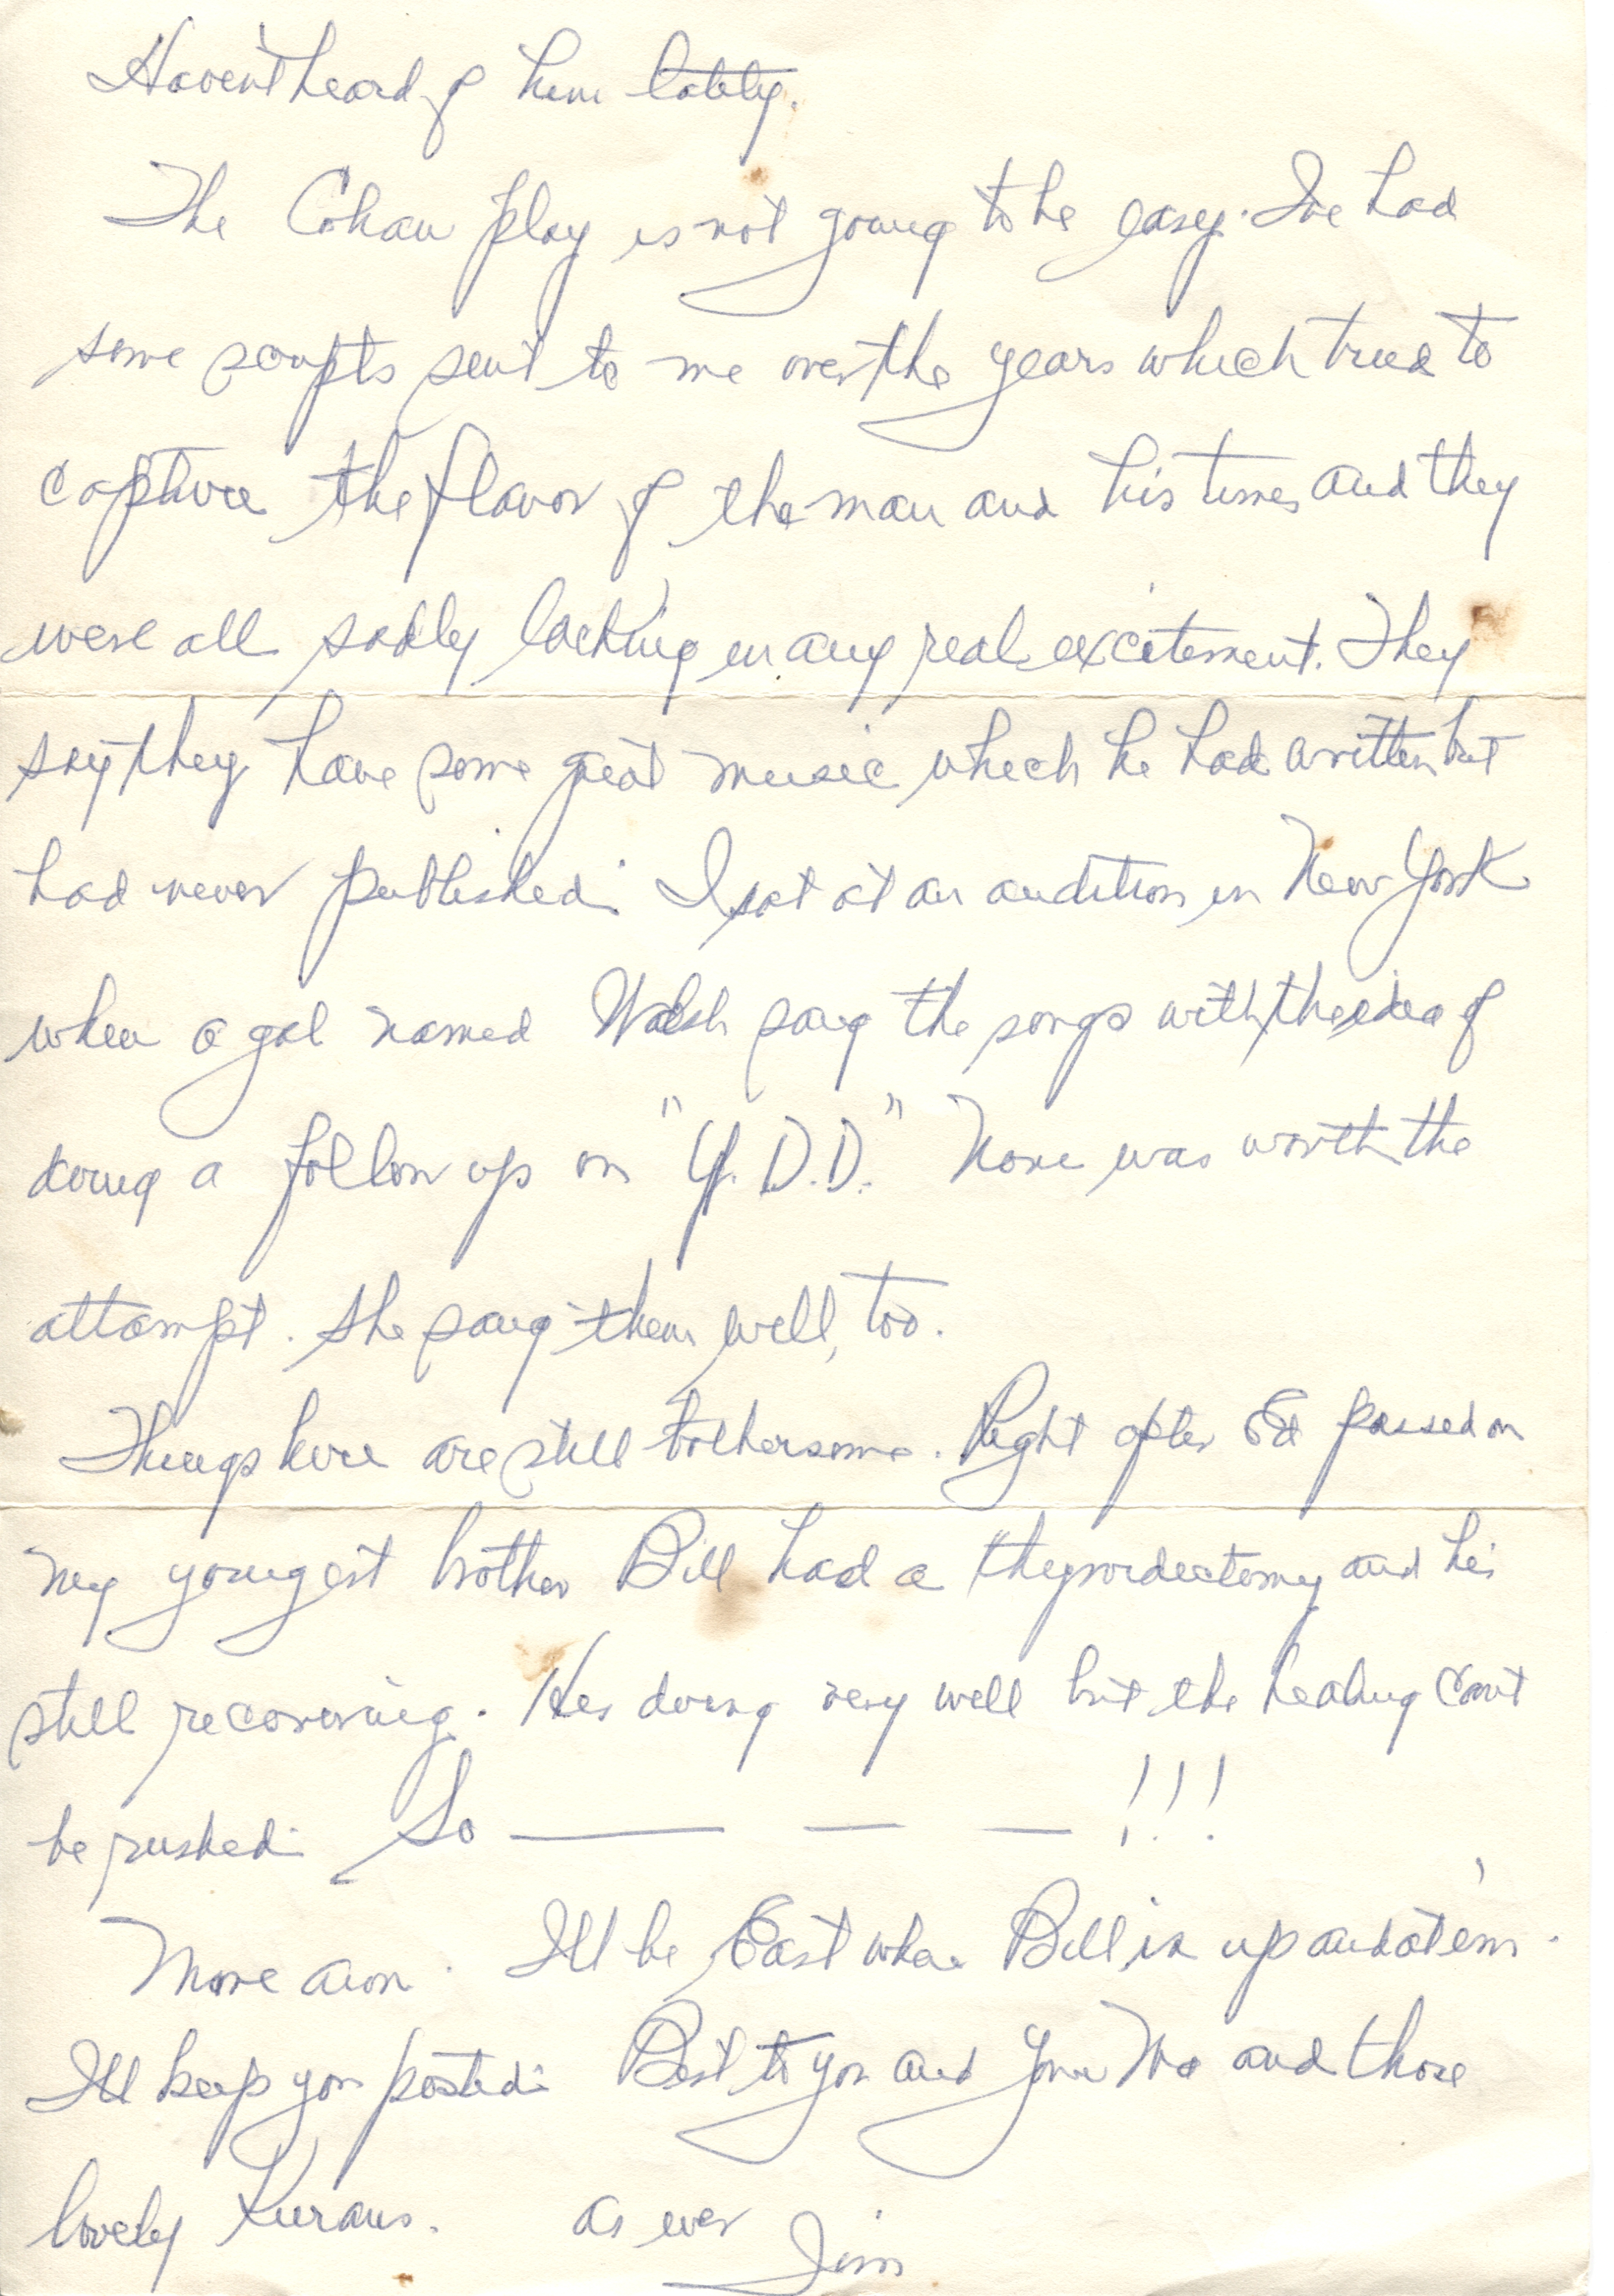 Haven't heard of him lately.
The Cohan play is not going to be easy. I've had
some scripts sent to me over the years which tried to
capture the flavor of the man and his times and they
were all sadly lacking in any real excitement. They
say they have some great music which he had written but
had never published. I sat at an audition in New York
when a gal named Walsh sang the songs with the idea of
doing a follow up on "Y.D.D." None was worth the
attempt. She sang them well, too.
Things here are still bothersome. Right after Ed passed on
my youngest brother Bill had a thyroidectomy and he's
still recovering. He's doing very well but the healing can't
be rushed. So — — — !!!
More anon. I'll be East when Bill is up and at 'em.
I'll keep you posted. Best to you and your Ma and those
lovely Kurans. As ever
Jim